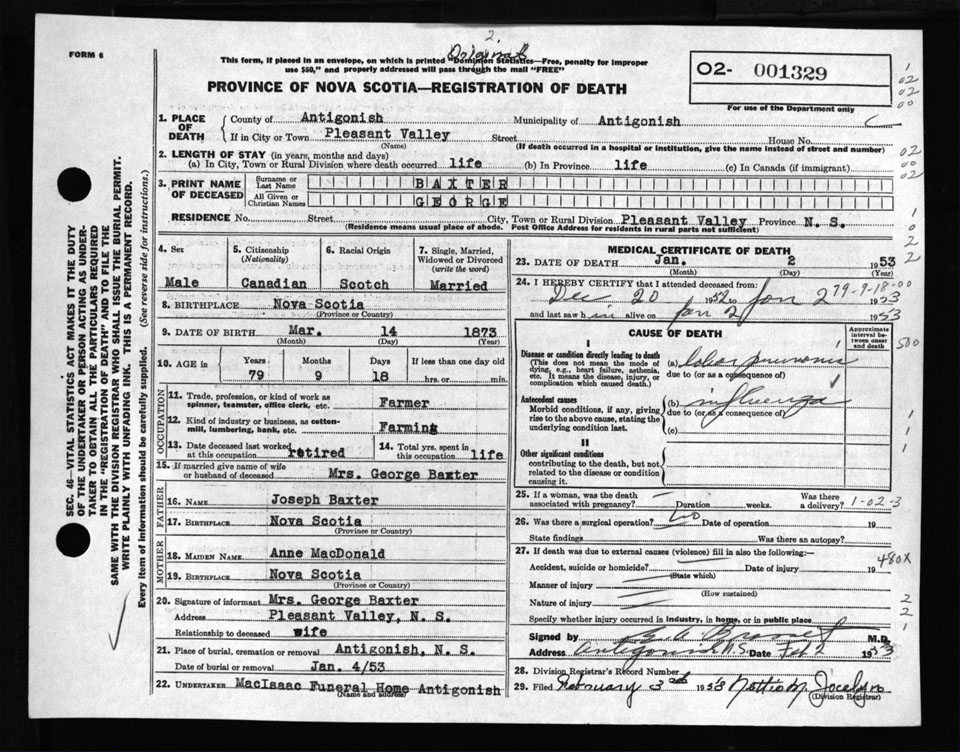 2.
Original
FORM 6
This form, if placed in an envelope, on which is printed "Dominion Statistics—Free, penalty for improper
use $50," and properly addressed will pass through the mail "FREE"
PROVINCE OF NOVA SCOTIA—REGISTRATION OF DEATH
02- 001329
For use of the Department only
1. PLACE OF DEATH
County of Antigonish Municipality of Antigonish
If in City or Town Pleasant Valley Street House No.
(Name) (If death occurred in a hospital or institution, give the name instead of street and number)
2. LENGTH OF STAY (in years, months and days)
(a) In City, Town or Rural Division where death occurred life (b) In Province life (c) In Canada (if immigrant)
3. PRINT NAME OF DECEASED
Surname or Last Name BAXTER
All Given or Christian Names GEORGE
RESIDENCE No. Street City, Town or Rural Division Pleasant Valley Province N. S.
(Residence means usual place of abode. Post Office Address for residents in rural parts not sufficient)
4. Sex
Male
5. Citizenship
(Nationality)
Canadian
6. Racial Origin
Scotch
7. Single, Married,
Widowed or Divorced
(write the word)
Married
8. BIRTHPLACE Nova Scotia
(Province or Country)
9. DATE OF BIRTH Mar. 14 1873
(Month) (Day) (Year)
10. AGE in Years Months Days If less than one day old
79 9 18 hrs. or min.
OCCUPATION
11. Trade, profession, or kind of work as
spinner, teamster, office clerk, etc. Farmer
12. Kind of industry or business, as cotton-
mill, lumbering, bank, etc. Farming
13. Date deceased last worked
at this occupation retired
14. Total yrs. spent in
this occupation life
15. If married give name of wife
or husband of deceased Mrs. George Baxter
FATHER
16. NAME Joseph Baxter
17. BIRTHPLACE Nova Scotia
(Province or Country)
MOTHER
18. MAIDEN NAME Anne MacDonald
19. BIRTHPLACE Nova Scotia
(Province or Country)
20. Signature of informant Mrs. George Baxter
Address Pleasant Valley, N. S.
Relationship to deceased wife
21. Place of burial, cremation or removal Antigonish, N. S.
Date of burial or removal Jan. 4/53
22. UNDERTAKER MacIsaac Funeral Home Antigonish
(Name and address)
MEDICAL CERTIFICATE OF DEATH
23. DATE OF DEATH Jan. 2 1953
(Month) (Day) (Year)
79-9-18-00
24. I HEREBY CERTIFY that I attended deceased from:
Dec 20 1952 to Jan 2 1953
and last saw him alive on Jan 2 1953
CAUSE OF DEATH
Approximate interval between onset and death
I
Disease or condition directly leading to death
(This does not mean the mode of
dying, e.g., heart failure, asthenia,
etc. It means the disease, injury, or
complication which caused death.)
(a) lobar pneumonia
due to (or as a consequence of)
Antecedent causes
Morbid conditions, if any, giving
rise to the above cause, stating the
underlying condition last.
(b) influenza
due to (or as a consequence of)
(c)
II
Other significant conditions
contributing to the death, but not
related to the disease or condition
causing it.
25. If a woman, was the death
associated with pregnancy? Duration weeks. Was there
a delivery? 1-02-3
26. Was there a surgical operation? No Date of operation 19
State findings Was there an autopsy?
27. If death was due to external causes (violence) fill in also the following:
480X
Accident, suicide or homicide? Date of injury 19
(State which)
Manner of injury
(How sustained)
Nature of injury
Specify whether injury occurred in industry, in home, or in public place
Signed by M.D.
Address Antigonish N.S. Date Feb 2 1953
28. Division Registrar's Record Number
29. Filed February 3rd 1953 Nettie M. Jocelyn
(Division Registrar)
SEC. 46—VITAL STATISTICS ACT MAKES IT THE DUTY
OF THE UNDERTAKER OR PERSON ACTING AS UNDER-
TAKER TO OBTAIN ALL THE PARTICULARS REQUIRED
IN THE "REGISTRATION OF DEATH" AND TO FILE THE
SAME WITH THE DIVISION REGISTRAR WHO SHALL ISSUE THE BURIAL PERMIT.
WRITE PLAINLY WITH UNFADING INK. THIS IS A PERMANENT RECORD.
Every item of information should be carefully supplied. (See reverse side for instructions.)
1
02
02
00
02
00
02
1
0
2
2
500
1
1
1
2
2
1